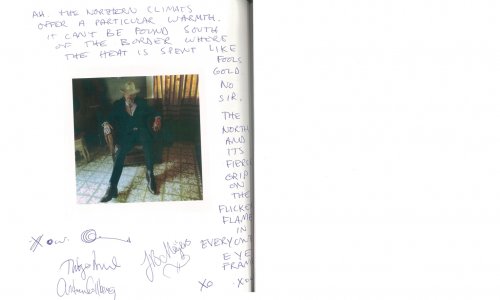 AH. THE NORTHERN CLIMATS
OFFER A PARTICULAR WARMTH.
IT CAN'T BE FOUND SOUTH
OF THE BORDER WHERE
THE HEAT IS SPENT LIKE
FOOLS
GOLD.
NO
SIR.
THE
NORTH
AND
ITS
FIERCE
GRIP
ON
THE
FLICKE
FLAME
IN
EVERYONE
EYE
FRAN
XO